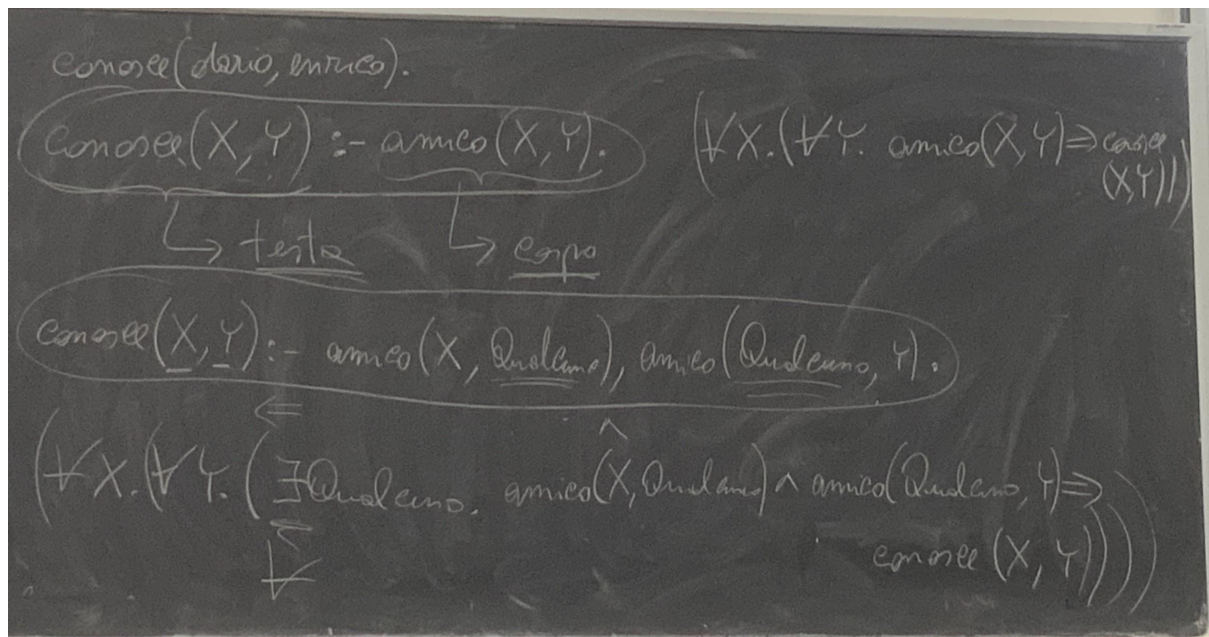 conosce(dario, enrico).
conosce(X, Y) :- amico(X, Y).
(∀X.(∀Y. amico(X,Y) ⇒ conosce
(X,Y)))
↳ testa ↳ corpo
conosce(X, Y) :- amico(X, Qualcuno), amico(Qualcuno, Y).
⇐ ∧
(∀X.(∀Y.(∃Qualcuno. amico(X, Qualcuno) ∧ amico(Qualcuno, Y) ⇒
∀ conosce(X, Y))))